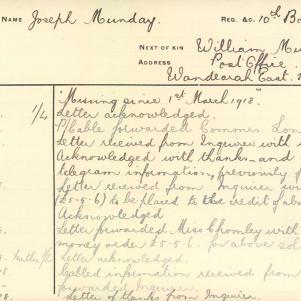 NAME Joseph Munday. REG. &C. 10th Ba
NEXT OF KIN William Mu
ADDRESS Post Office.
Wandearah East.
"Missing since 1st March 1918".
1/4 Letter acknowledged.
P/Cable forwarded Commrs. Lon
Letter received from Inquirer with
Acknowledged with thanks - and
telegram information, previously f
Letter received from Inquirer
(£5-5-6) to be placed to credit of abov
Acknowledged
Letter forwarded Miss Cromley with
money order £5-5-6. for above sol
Letter acknowledged.
Cabled information received from
forwarded Inquirer.
Letter of thanks from Inquirer.